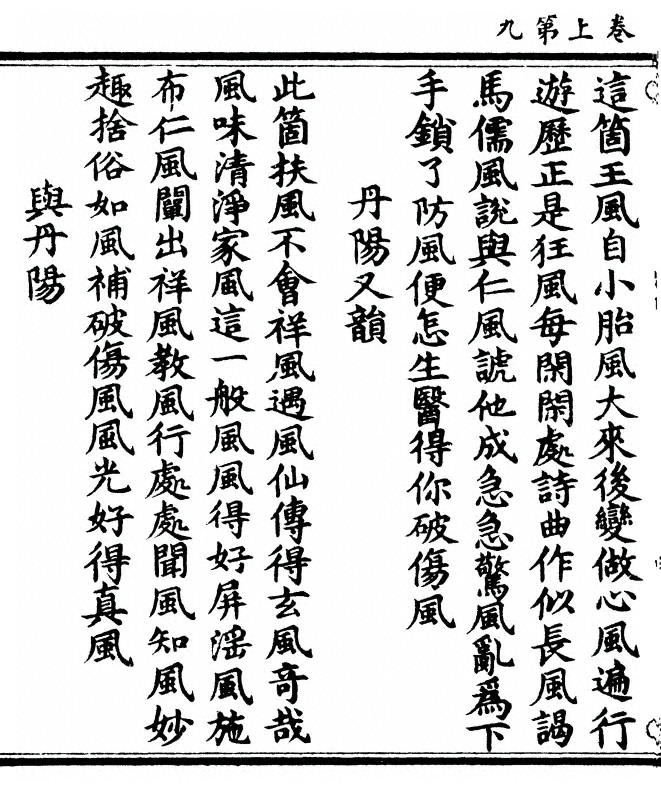 卷上第九
這箇王風自小胎風大來後變做心風遍行
遊歷正是狂風每閑閑處詩曲作似長風謁
馬儒風說與仁風諕他成急急驚風亂為下
手鎖了防風便怎生醫得你破傷風
丹陽又韻
此箇扶風不會祥風遇風仙傳得玄風奇哉
風味清淨家風這一般風風得好屏淫風施
布仁風闡出祥風教風行處處聞風知風妙
趣捨俗如風補破傷風風光好得真風
與丹陽